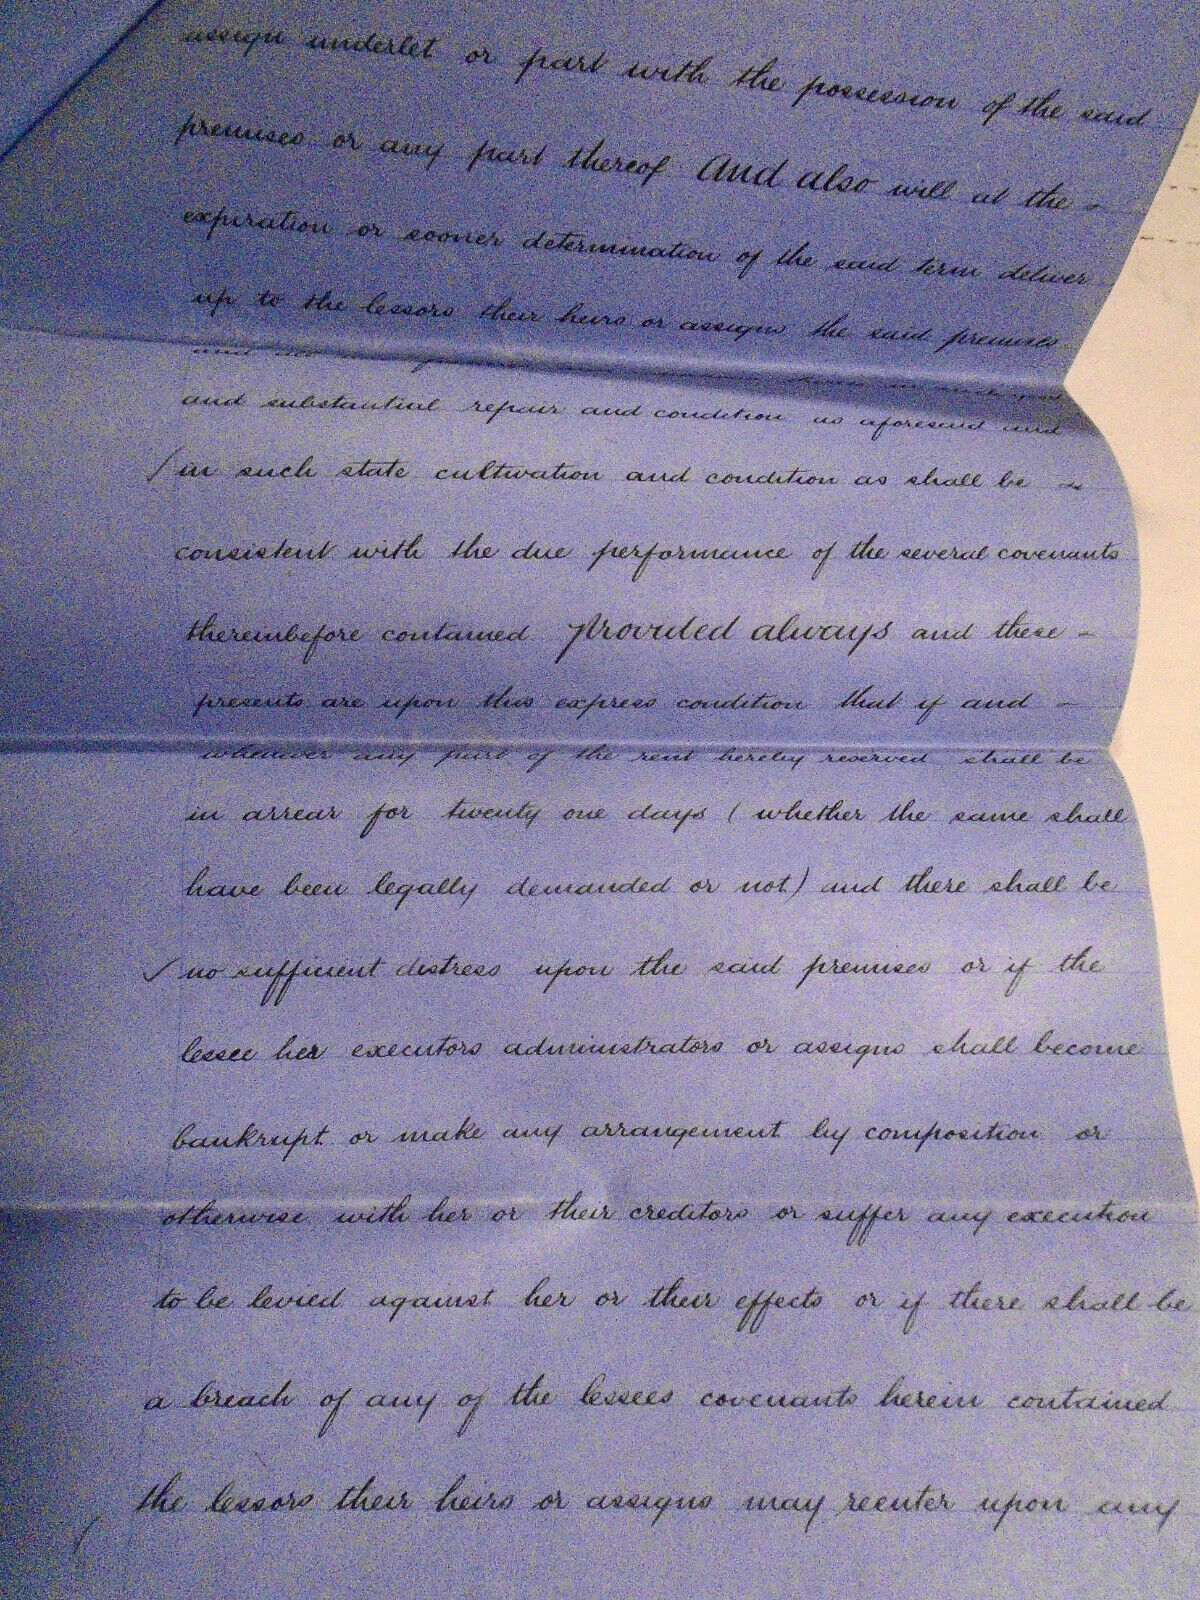 assign underlet or part with the possession of the said
premises or any part thereof And also will at the
expiration or sooner determination of the said term deliver
up to the lessors their heirs or assigns the said premises
and
and substantial repair and condition as aforesaid and
in such state cultivation and condition as shall be
consistent with the due performance of the several covenants
thereinbefore contained Provided always and these
presents are upon this express condition that if and
whenever any part of the rent hereby reserved shall be
in arrear for twenty one days (whether the same shall
have been legally demanded or not) and there shall be
no sufficient distress upon the said premises or if the
lessee her executors administrators or assigns shall become
bankrupt or make any arrangement by composition or
otherwise with her or their creditors or suffer any execution
to be levied against her or their effects or if there shall be
a breach of any of the lessees covenants herein contained
the lessors their heirs or assigns may reenter upon any